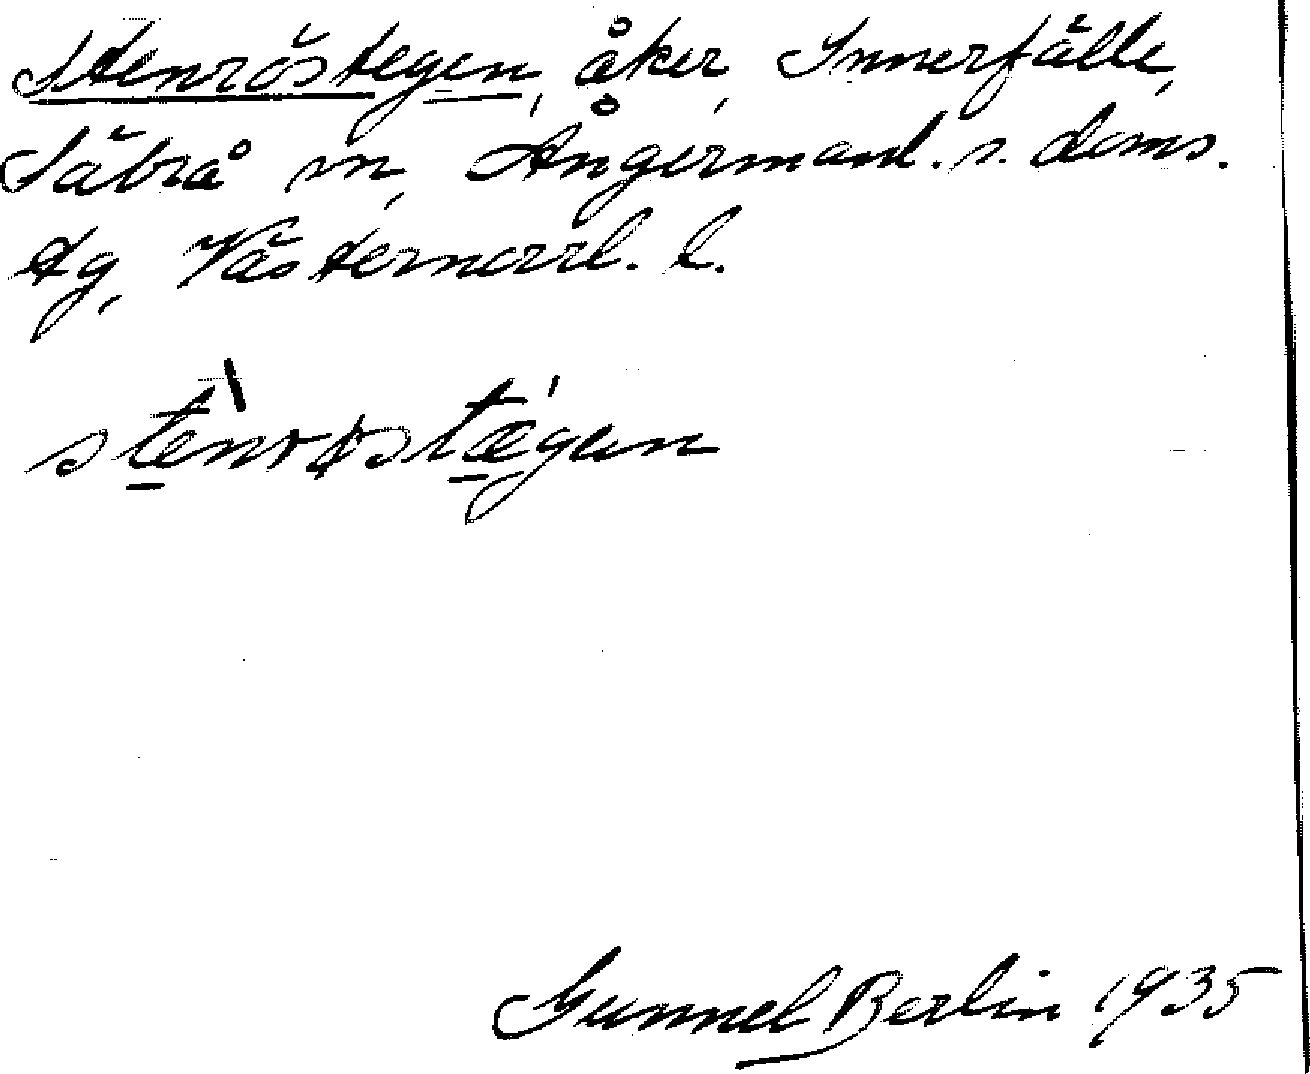 Stenröstegen, åker, Innerfälle,
Säbrå sn, Ångermanl. s. doms.
tg, Västernorrl. l.
stènrøstǽgan
Gunnel Berlin 1935